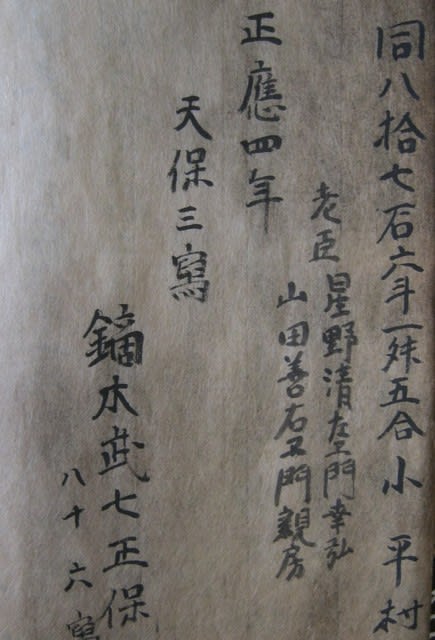 同八拾七石六斗一舛五合小平村
老臣 星野清左エ門幸弘
山田善右ヱ門親房
正應四年
天保三寫
鏑木武七正保
八十六寫